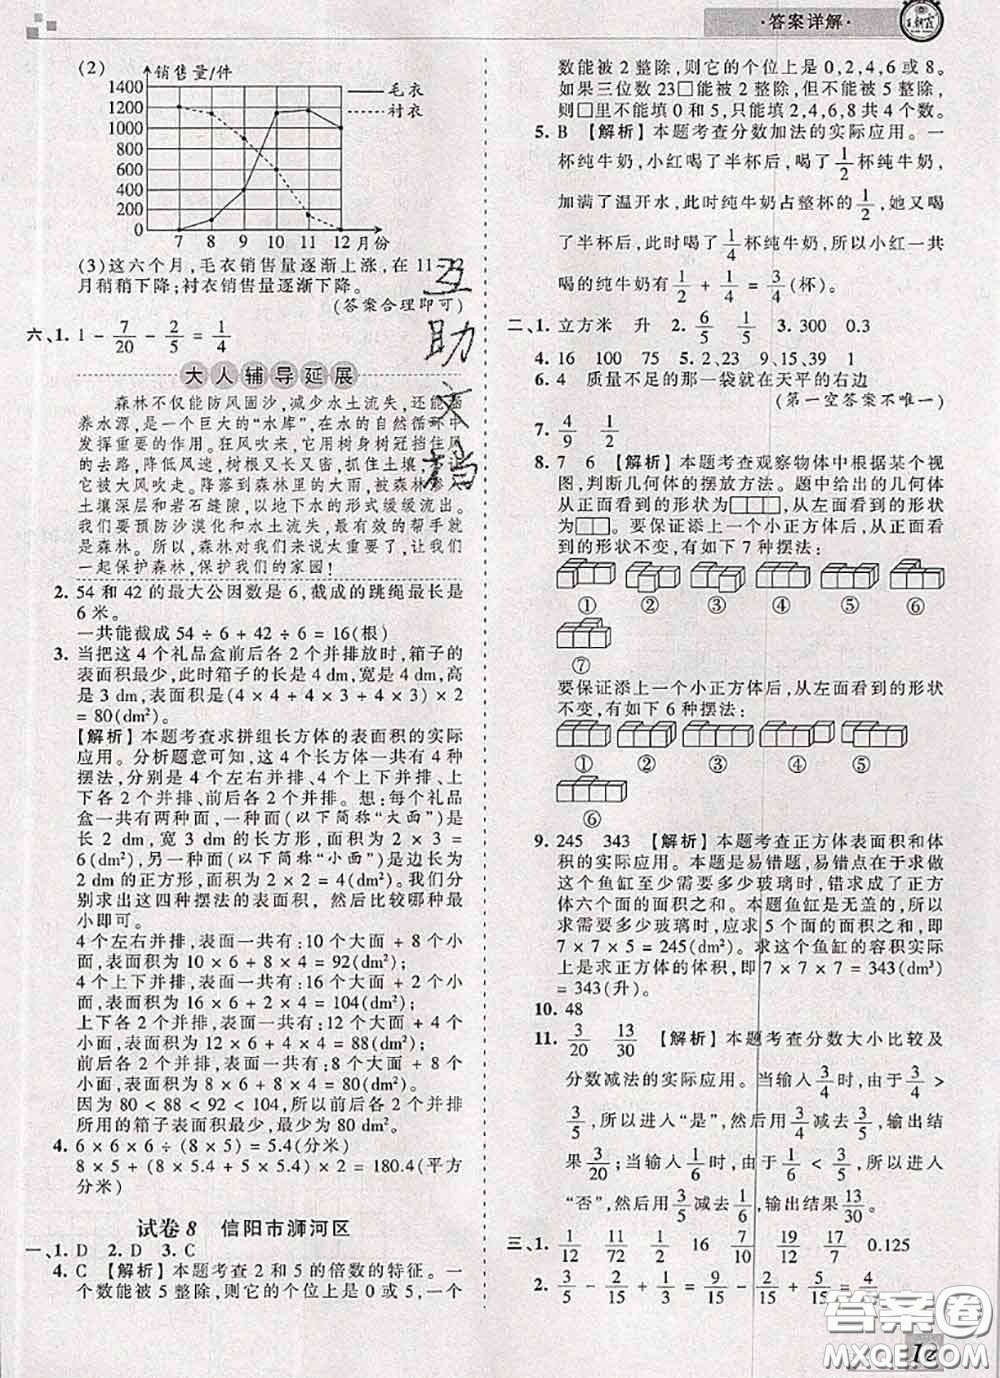 ·答案详解·
(2)
销售量/件
1400
1200
1000
800
600
400
200
0
7 8 9 10 11 12 月份
毛衣
衬衣
(3)这六个月,毛衣销售量逐渐上涨,在 11
月稍稍下降;衬衣销售量逐渐下降。
(答案合理即可)
六、1. 1 - 7/20 - 2/5 = 1/4
大人辅导延展
森林不仅能防风固沙,减少水土流失,还能涵
养水源,是一个巨大的“水库”,在水的自然循环中
发挥重要的作用。狂风吹来,它用树身树冠挡住风
的去路,降低风速,树根又长又密,抓住土壤,不让
它被大风吹走。降落到森林里的大雨,渗透到
土壤深层和岩石缝隙,以地下水的形式缓缓流出。
我们要预防沙漠化和水土流失,最有效的帮手就
是森林。所以,森林对我们来说太重要了,让我们
一起保护森林,保护我们的家园!
2. 54 和 42 的最大公因数是 6,截成的跳绳最长是
6 米。
一共能截成 54 ÷ 6 + 42 ÷ 6 = 16(根)
3. 当把这 4 个礼品盒前后各 2 个并排放时,箱子的
表面积最少,此时箱子的长是 4 dm,宽是 4 dm,高
是 3 dm,表面积是 (4 × 4 + 4 × 3 + 4 × 3) × 2
= 80(dm²)。
【解析】本题考查求拼组长方体的表面积的实际
应用。分析题意可知,这 4 个长方体一共有 4 种
摆法,分别是 4 个左右并排、4 个上下并排、上
下各 2 个并排、前后各 2 个并排。想:每个礼品
盒一共有两种面,一种面(以下简称“大面”)是
长 2 dm,宽 3 dm 的长方形,面积为 2 × 3 =
6(dm²),另一种面(以下简称“小面”)是边长为
2 dm 的正方形,面积为 2 × 2 = 4(dm²)。我们
分别求出这四种摆法的表面积,然后比较哪种最
小即可。
4 个左右并排,表面一共有:10 个大面 + 8 个小
面,表面积为 10 × 6 + 8 × 4 = 92(dm²);
4 个上下并排,表面一共有:16 个大面 + 2 个小
面,表面积为 16 × 6 + 2 × 4 = 104(dm²);
上下各 2 个并排,表面一共有:12 个大面 + 4 个
小面,表面积为 12 × 6 + 4 × 4 = 88(dm²);
前后各 2 个并排,表面一共有:8 个大面 + 8 个
小面,表面积为 8 × 6 + 8 × 4 = 80(dm²)。
因为 80 < 88 < 92 < 104,所以前后各 2 个并排
所用的箱子表面积最少,最少是 80 dm²。
4. 6 × 6 × 6 ÷ (8 × 5) = 5.4(分米)
8 × 5 + (8 × 5.4 + 5 × 5.4) × 2 = 180.4(平方
分米)
试卷 8 信阳市浉河区
一、1. D 2. D 3. C
4. C 【解析】本题考查 2 和 5 的倍数的特征。一
个数能被 5 整除,则它的个位上是 0 或 5,一个
数能被 2 整除,则它的个位上是 0,2,4,6 或 8。
如果三位数 23□能被 2 整除,但不能被 5 整除,
则□里不能填 0 和 5,只能填 2,4,6,8 共 4 个数。
5. B 【解析】本题考查分数加法的实际应用。一
杯纯牛奶,小红喝了半杯后,喝了 1/2 杯纯牛奶,
加满了温开水,此时纯牛奶占整杯的 1/2,她又喝
了半杯后,此时喝了 1/4 杯纯牛奶,所以小红一共
喝的纯牛奶有 1/2 + 1/4 = 3/4(杯)。
二、1. 立方米 升 2. 6/5 1/5 3. 300 0.3
4. 16 100 75 5. 2、23 9、15、39 1
6. 4 质量不足的那一袋就在天平的右边
(第一空答案不唯一)
7. 4/9 1/2
8. 7 6 【解析】本题考查观察物体中根据某个视
图,判断几何体的摆放方法。题中给出的几何体
从正面看到的形状为□□□,从左面看到的形状
为□□。要保证添上一个小正方体后,从正面看
到的形状不变,有如下 7 种摆法:
① ② ③ ④ ⑤ ⑥
⑦
要保证添上一个小正方体后,从左面看到的形状
不变,有如下 6 种摆法:
① ② ③ ④ ⑤
⑥
9. 245 343 【解析】本题考查正方体表面积和体
积的实际应用。本题是易错题,易错点在于求做
这个鱼缸至少需要多少玻璃时,错求成了正方
体六个面的面积之和。本题鱼缸是无盖的,所以
求需要多少玻璃时,应求 5 个面的面积之和,即
7 × 7 × 5 = 245(dm²)。求这个鱼缸的容积实际
上是求正方体的体积,即 7 × 7 × 7 = 343(dm³) =
343(升)。
10. 48
11. 3/20 13/30 【解析】本题考查分数大小比较及
分数减法的实际应用。当输入 3/4 时,由于 3/4 >
3/5,所以进入“是”,然后用 3/4 减去 3/5,输出结
果 3/20;当输入 1/6 时,由于 1/6 < 3/5,所以进入
“否”,然后用 3/5 减去 1/6,输出结果 13/30。
三、1. 1/12 11/72 1/2 16 7/10 12/19 17/7 0.125
2. 3/5 - 2/15 + 1/3 = 9/15 - 2/15 + 5/15 = 4/5
互
助
文
档
答案圈
MXQE.COM